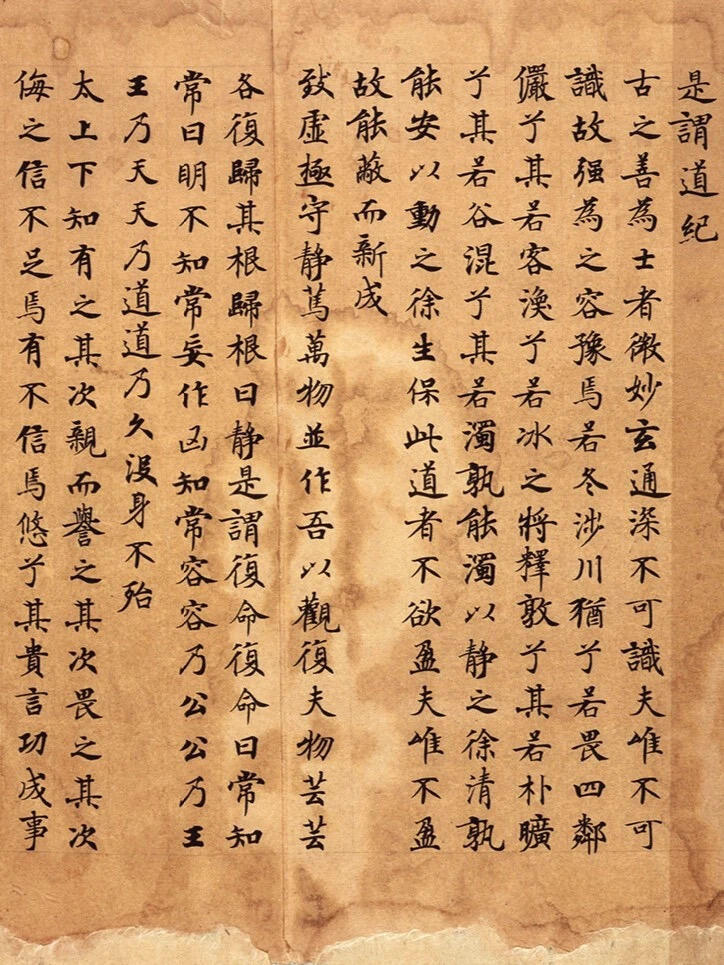 是謂道紀
古之善為士者微妙玄通深不可識夫唯不可
識故强為之容豫焉若冬涉川猶兮若畏四鄰
儼兮其若客渙兮若冰之將釋敦兮其若朴曠
兮其若谷混兮其若濁孰能濁以静之徐清孰
能安以動之徐生保此道者不欲盈夫唯不盈
故能蔽而新成
致虛極守静篤萬物並作吾以觀復夫物芸芸
各復歸其根歸根曰静是謂復命復命曰常知
常曰明不知常妄作凶知常容容乃公公乃王
王乃天天乃道道乃久沒身不殆
太上下知有之其次親而譽之其次畏之其次
侮之信不足焉有不信焉悠兮其貴言功成事